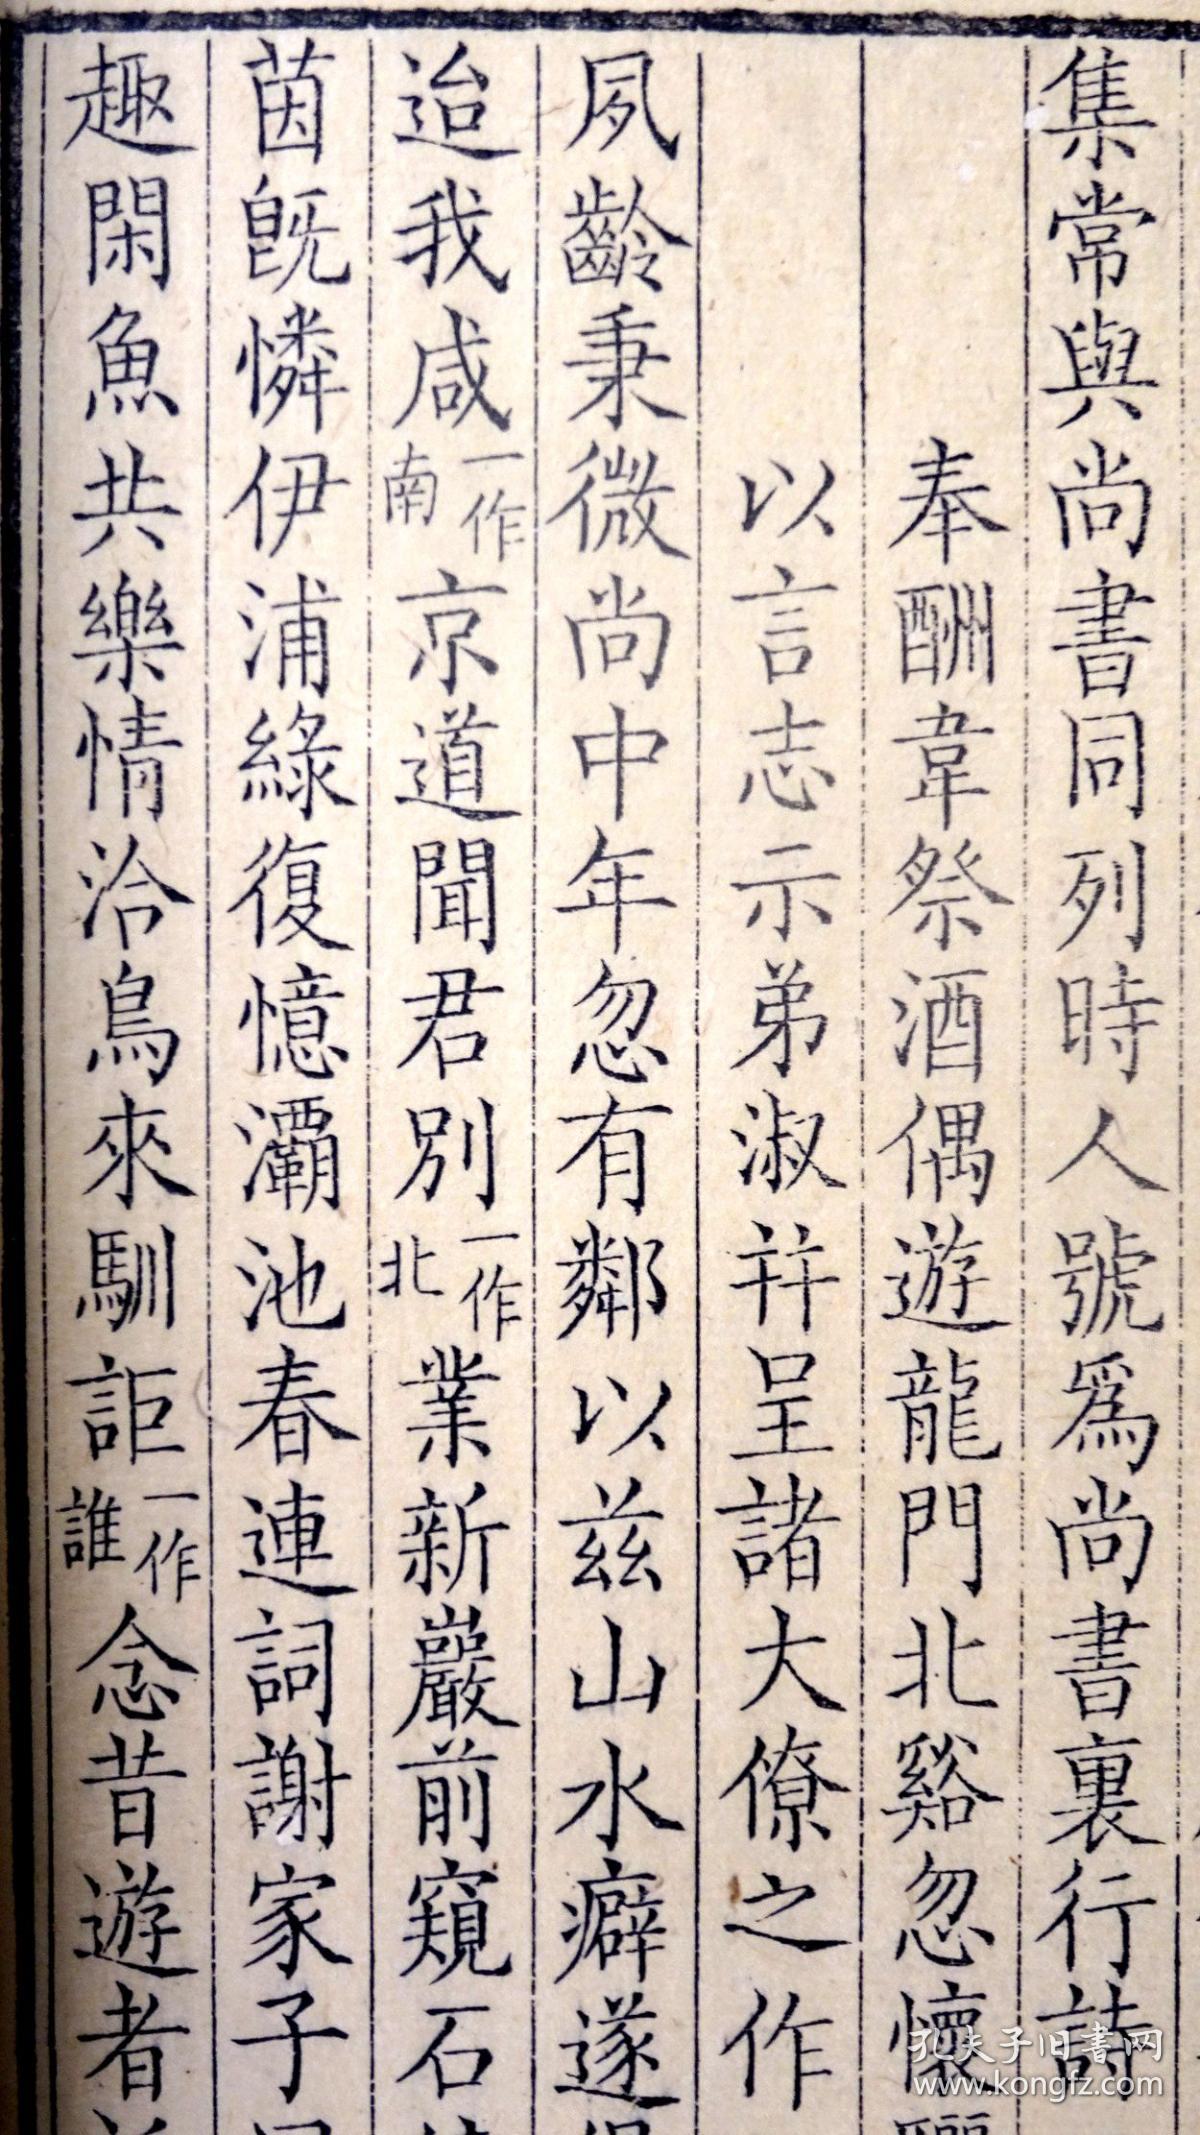 集常與尚書同列時人號爲尚書裏行詩
奉酬韋祭酒偶遊龍門北谿忽懷驪
以言志示弟淑并呈諸大僚之作
夙齡秉微尚中年忽有鄰以兹山水癖遂得
迨我咸一作南京道聞君別一作北業新巖前窺石
茵旣憐伊浦綠復憶灞池春連詞謝家子
趣閑魚共樂情洽鳥來馴詎一作誰念昔遊者
孔夫子旧书网
www.kongfz.com